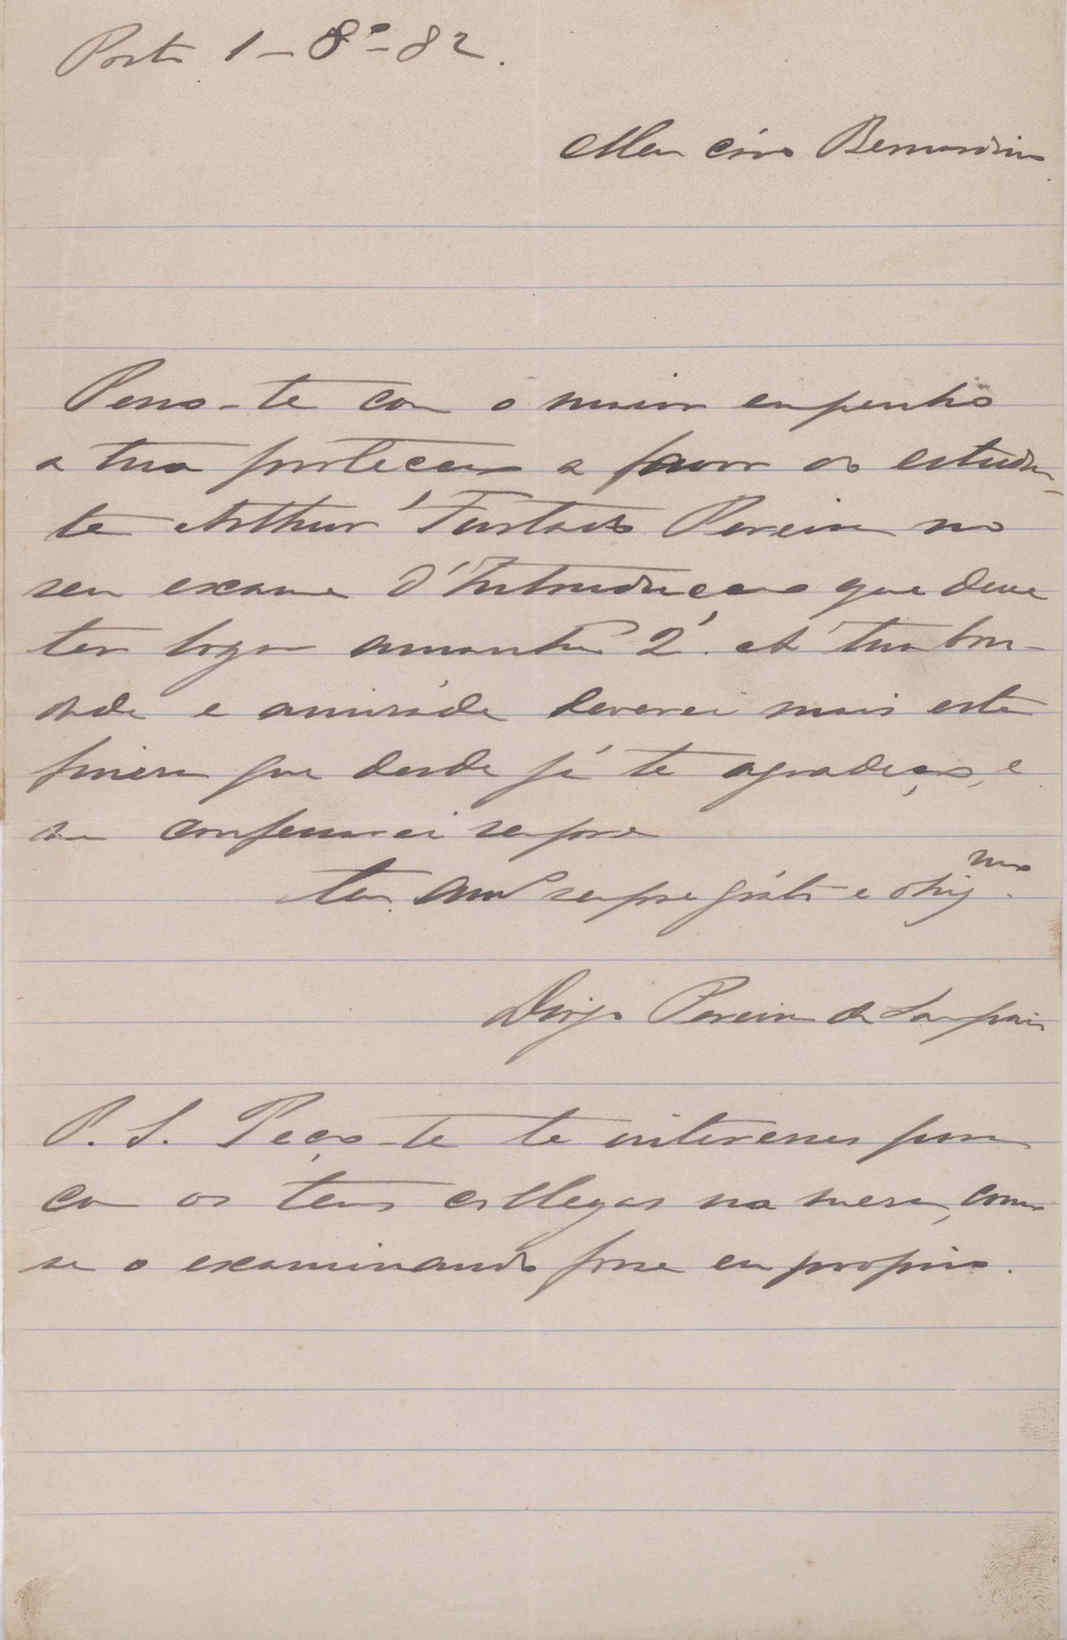 Porto 1-8º-82.
Meu cáro Bernardino
Peço-te com o maior empenho
a tua protecção a favor do estudan-
te Arthur Furtado Pereira no
seu exame d'Introducção que deve
ter logar amanhã 2. A tua bon-
dade e amisáde deverei mais esta
finesa que desde já te agradeço, e
me confessarei sempre
teu amº sempre gráto e obrigmo.
Diogo Pereira de Sampaio
P. S. Peço-te te interesses para
com os teus collegas na mesa, como
se o examinando fosse eu proprio.